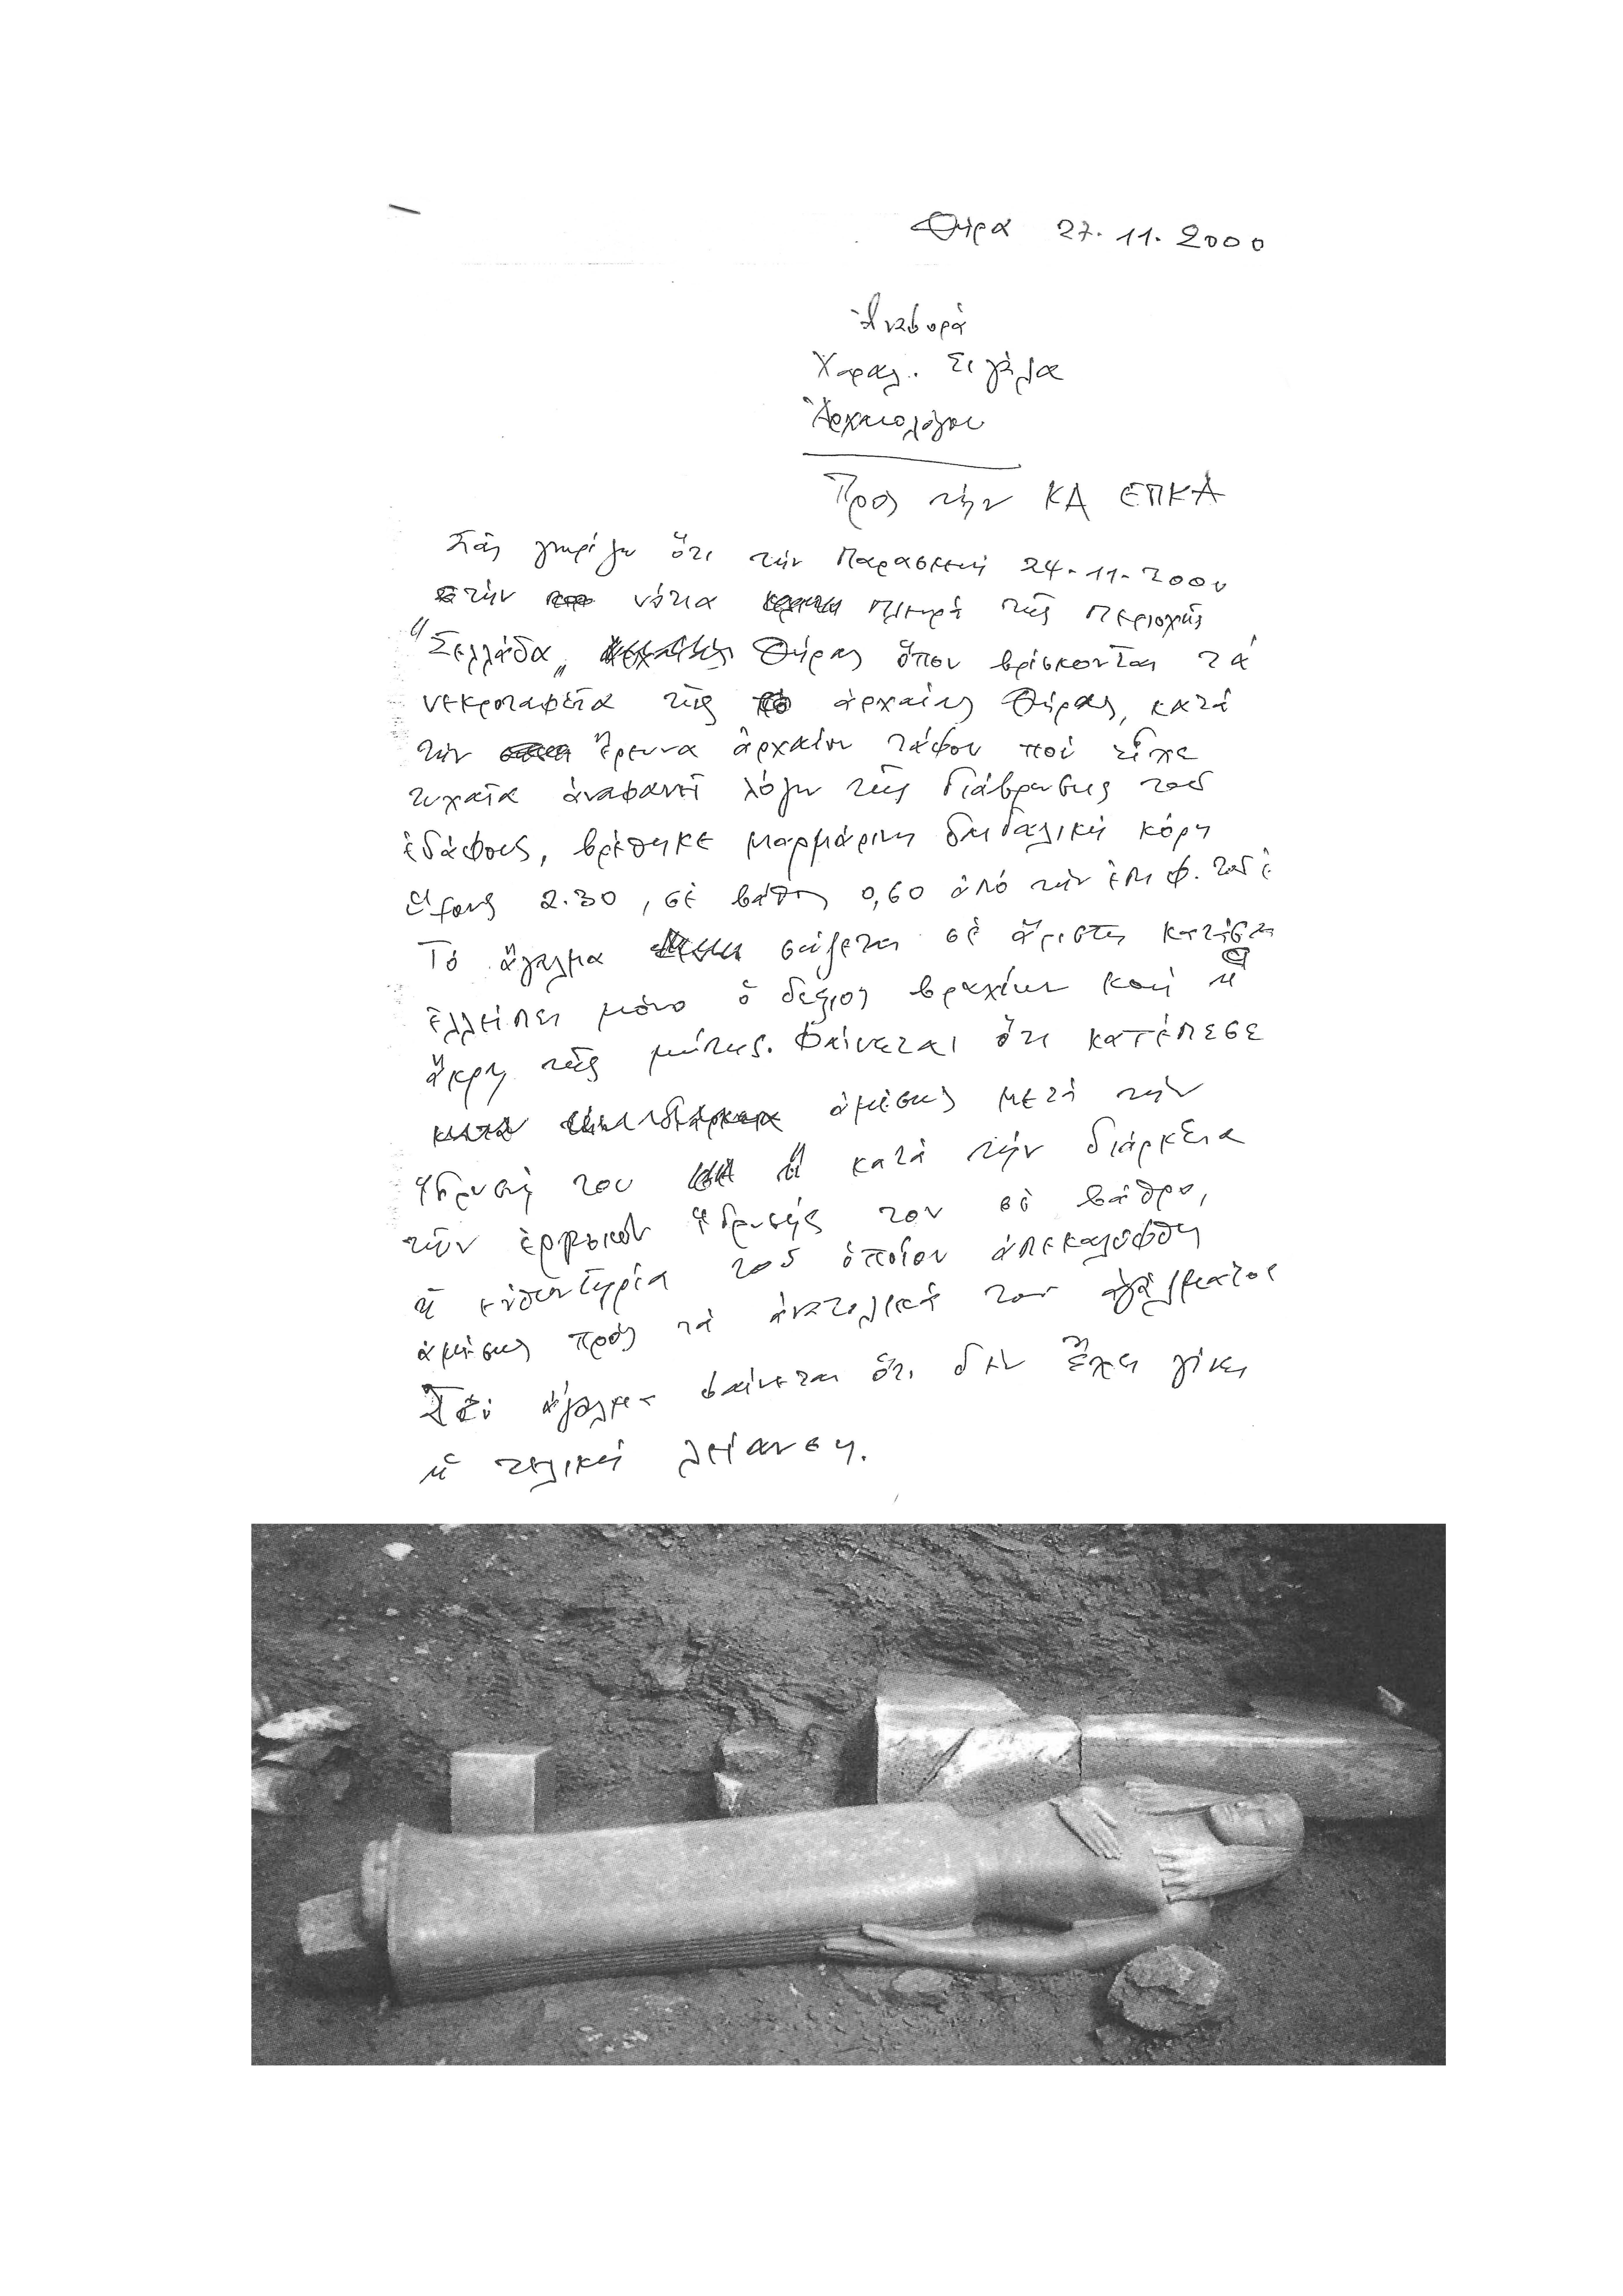 Θήρα 27.11.2000
Ἀναφορά
Χαραλ. Σιγάλα
Ἀρχαιολόγου
Πρὸς τὴν ΚΑ ΕΠΚΑ
Σᾶς γνωρίζω ὅτι τὴν Παρασκευή 24-11-2000
στὴν νότια πλευρά τῆς περιοχῆς
"Σελλάδα„ Θήρας ὅπου βρίσκονται τά
νεκροταφεῖα τῆς ἀρχαίας Θήρας, κατά
τὴν ἔρευνα ἀρχαίου τάφου πού εἶχε
τυχαῖα ἀναφανεῖ λόγω τῆς διάβρωσης τοῦ
ἐδάφους, βρέθηκε μαρμάρινη δαιδαλική κόρη
ὕψους 2.30, σὲ βάθος 0,60 ἀπό τὴν ἐπιφ. τοῦ ἐ
Τό ἄγαλμα σώζεται σὲ ἄριστη κατάστ
ἐλλείπει μόνο ὁ δεξιος βραχίων καὶ ἡ
ἄκρη τῆς μύτης. Φαίνεται ὅτι κατέπεσε
ἀμέσως μετά τὴν
ἵδρυσή του ἤ κατά τὴν διάρκεια
τῶν ἐργασιῶν ἱδρυσής του σὲ βάθρο,
ἡ εὐθυντηρία τοῦ ὁποίου ἀπεκαλύφθη
ἀμέσως πρός τὰ ἀνατολικά τοῦ ἀγάλματος
Στό ἄγαλμα φαίνεται ὅτι δὲν ἔχει γίνει
ἡ τελική λείανση.